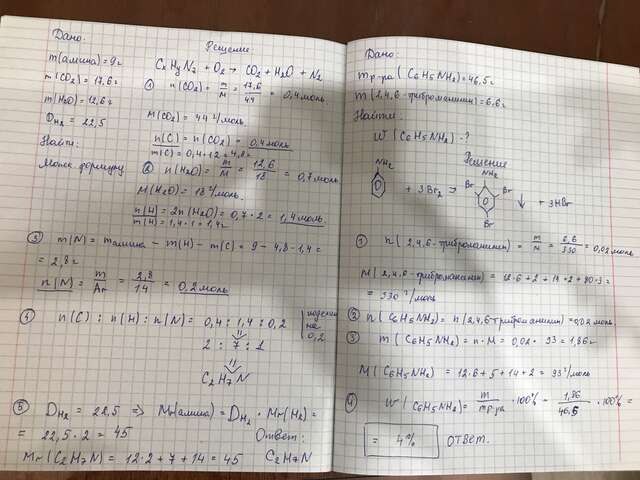 Дано:
m(амина) = 9 г
m(CO2) = 17,6 г
m(H2O) = 12,6 г
DH2 = 22,5
Найти:
Решение
CxHyNz + O2 → CO2 + H2O + N2
① n(CO2) = m/M = 17,6/44 = 0,4 моль
M(CO2) = 44 г/моль
n(C) = n(CO2) = 0,4 моль
m(C) = 0,4 · 12 = 4,8 г
② n(H2O) = m/M = 12,6/18 = 0,7 моль
M(H2O) = 18 г/моль
n(H) = 2n(H2O) = 0,7 · 2 = 1,4 моль
m(H) = 1,4 · 1 = 1,4 г
③ m(N) = m амина − m(H) − m(C) = 9 − 4,8 − 1,4 =
= 2,8 г
n(N) = m/Ar = 2,8/14 = 0,2 моль
④ n(C) : n(H) : n(N) = 0,4 : 1,4 : 0,2
2 : 7 : 1
C2H7N
⑤ DH2 = 22,5 ⇒ M(амина) = DH2 · Mr(H2) =
= 22,5 · 2 = 45
Mr(C2H7N) = 12·2 + 7 + 14 = 45
Ответ:
C2H7N
Дано
m р-ра (C6H5NH2) = 46,5 г
m(2,4,6 триброманилин) = 6,6 г
Найти:
W (C6H5NH2) - ?
Решение
NH2
+ 3Br2 →
NH2
Br
Br
Br
↓ + 3HBr
① n(2,4,6 триброманилин) = m/M = 6,6/330 = 0,02 моль
M(2,4,6 - триброманилин) = 12·6 + 2 + 14 + 2 + 80·3 =
= 330 г/моль
② n(C6H5NH2) = n(2,4,6-триброманилин) = 0,02 моль
③ m(C6H5NH2) = n · M = 0,02 · 93 = 1,86 г
M(C6H5NH2) = 12·6 + 5 + 14 + 2 = 93 г/моль
④ W(C6H5NH2) = m/m р-ра · 100% = 1,86/46,5 · 100% =
= 4% Ответ.